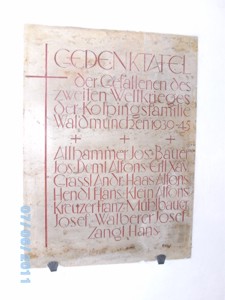 GEDENKTAFEL
der Gefallenen des
zweiten Weltkrieges
der Kolpingsfamilie
Waldmünchen 1939-45
Allhammer Jos· Bauer
Jos· Deml Alfons· Ertl Xav·
Grassl Andr· Haas Alfons·
Hendl Hans· Klein Alfons
Kreuzer Franz· Mühlbauer
Josef· Walberer Josef
Zangl Hans
07/08/2011